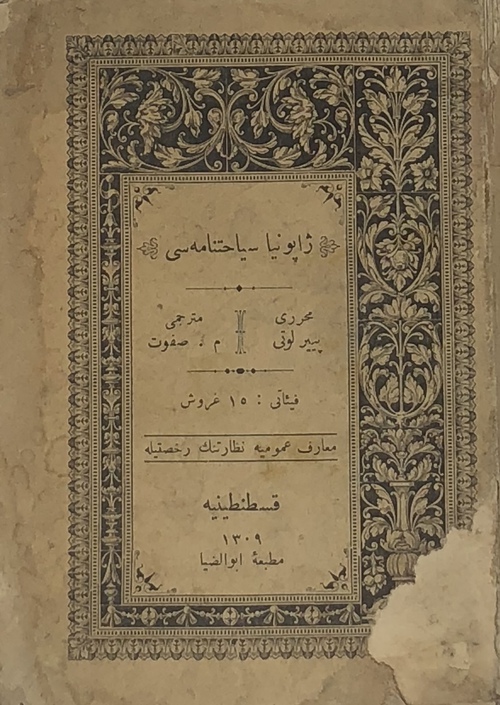 ژاپونیا سیاحتنامه‌سی
محرری
پییر لوتی
مترجمی
م . صفوت
فیئاتی : ١٥ غروش
معارف عمومیه نظارتنك رخصتیله
قسطنطینیه
١٣٠٩
مطبعهٔ ابوالضیا